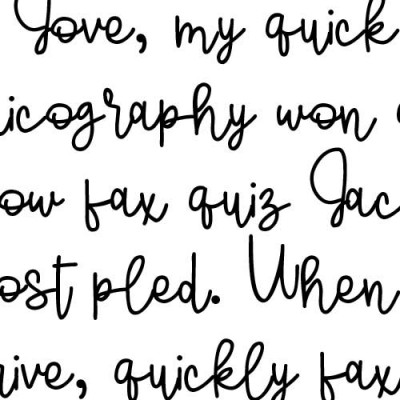 Jove, my quick
icography won
ow fax quiz Jac
ost pled. When
ive, quickly fax